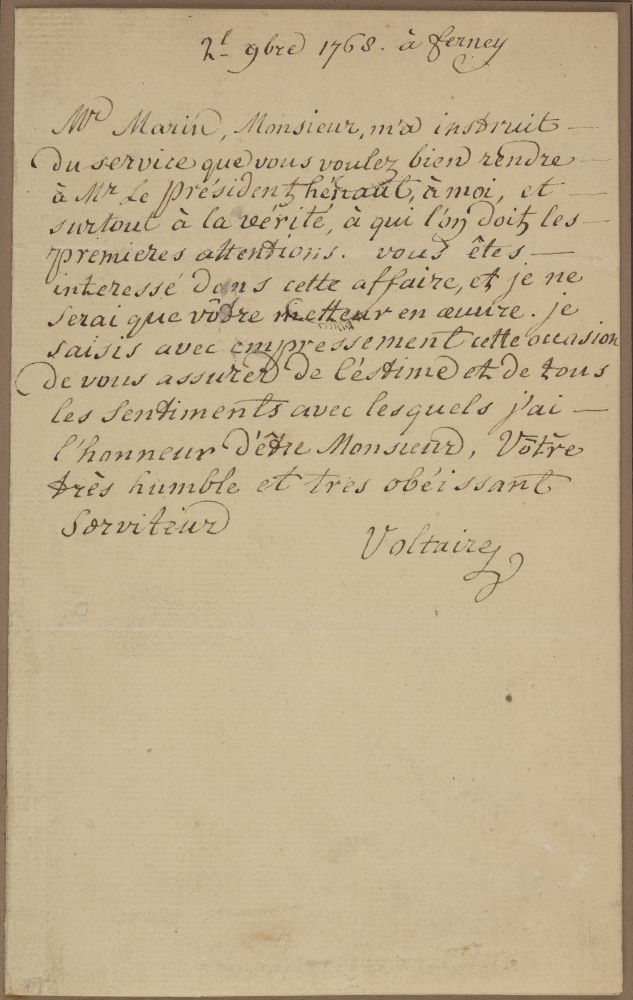 2d 9bre 1768. à ferney
Mr Marin, Monsieur, m'a instruit —
du service que vous voulez bien rendre —
à Mr Le Président hénault, à moi, et —
surtout à la vérité, à qui l'on doit les —
premieres attentions. vous êtes —
interessé dans cette affaire, et je ne
serai que vôtre metteur en œuvre. je
saisis avec empressement cette occasion
de vous assurer de l'éstime et de tous
les sentiments avec lesquels j'ai —
l'honneur d'être Monsieur, Vôtre
très humble et tres obéissant
Serviteur
Voltaire